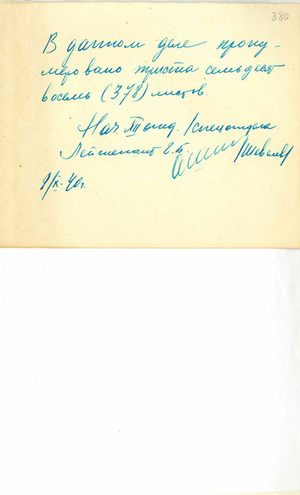 380
В данном деле прону-
меровано триста семьдесят
восемь (378) листов.
Нач. III отд. /спецотдела
Лейтенант г.б.
9/X-40г.